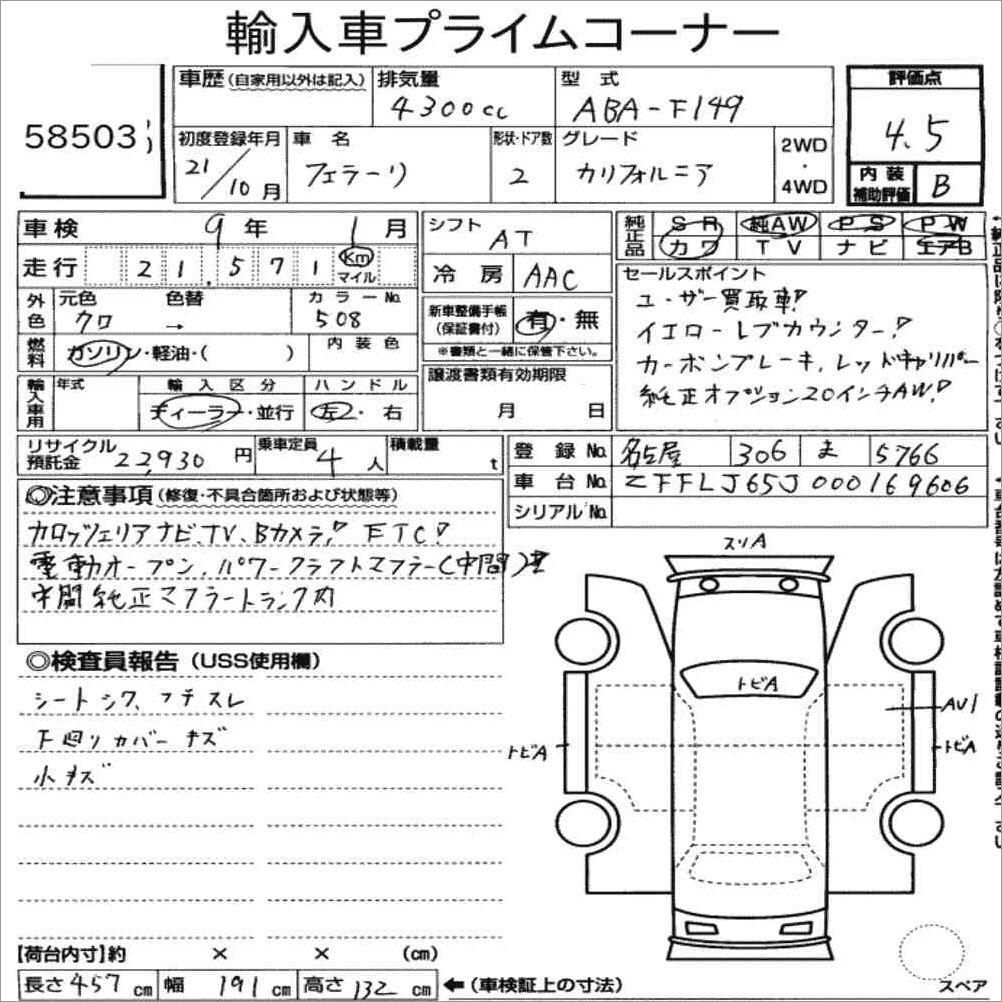 輸入車プライムコーナー
58503
車歴(自家用以外は記入)
排気量
4300cc
型式
ABA-F149
評価点
4.5
内装
補助評価
B
初度登録年月
21/10月
車名
フェラーリ
形状・ドア数
2
グレード
カリフォルニア
2WD
・
4WD
車検 9年 1月
走行 21,571 Km
マイル
外色
元色 クロ
色替 →
カラーNo. 508
燃料
ガソリン・軽油・( )
内装色
輸入車用
年式
輸入区分
ディーラー・並行
ハンドル
左・右
シフト AT
冷房 AAC
新車整備手帳
(保証書付)
有・無
※書類と一緒に保管下さい。
譲渡書類有効期限
月 日
純正品
SR 純AW PS PW
カワ TV ナビ エアB
セールスポイント
ユーザー買取車!
イエローレブカウンター!
カーボンブレーキ、レッドキャリパー
純正オプション20インチAW!
リサイクル
預託金
22,930円
乗車定員
4人
積載量
t
登録No. 名古屋 306 ま 5766
車台No. ZFFLJ65J000169606
シリアルNo.
◎注意事項(修復・不具合箇所および状態等)
カロッツェリアナビ、TV、Bカメラ! ETC!
電動オープン、パワークラフトマフラー(中間)
中間純正マフラートランク内
◎検査員報告(USS使用欄)
シートシワ、フチスレ
下廻りカバーキズ
小キズ
スリA
トビA
AU1
トビA
トビA
【荷台内寸】約 × × (cm)
長さ 457 cm 幅 191 cm 高さ 132 cm
←(車検証上の寸法)
スペア